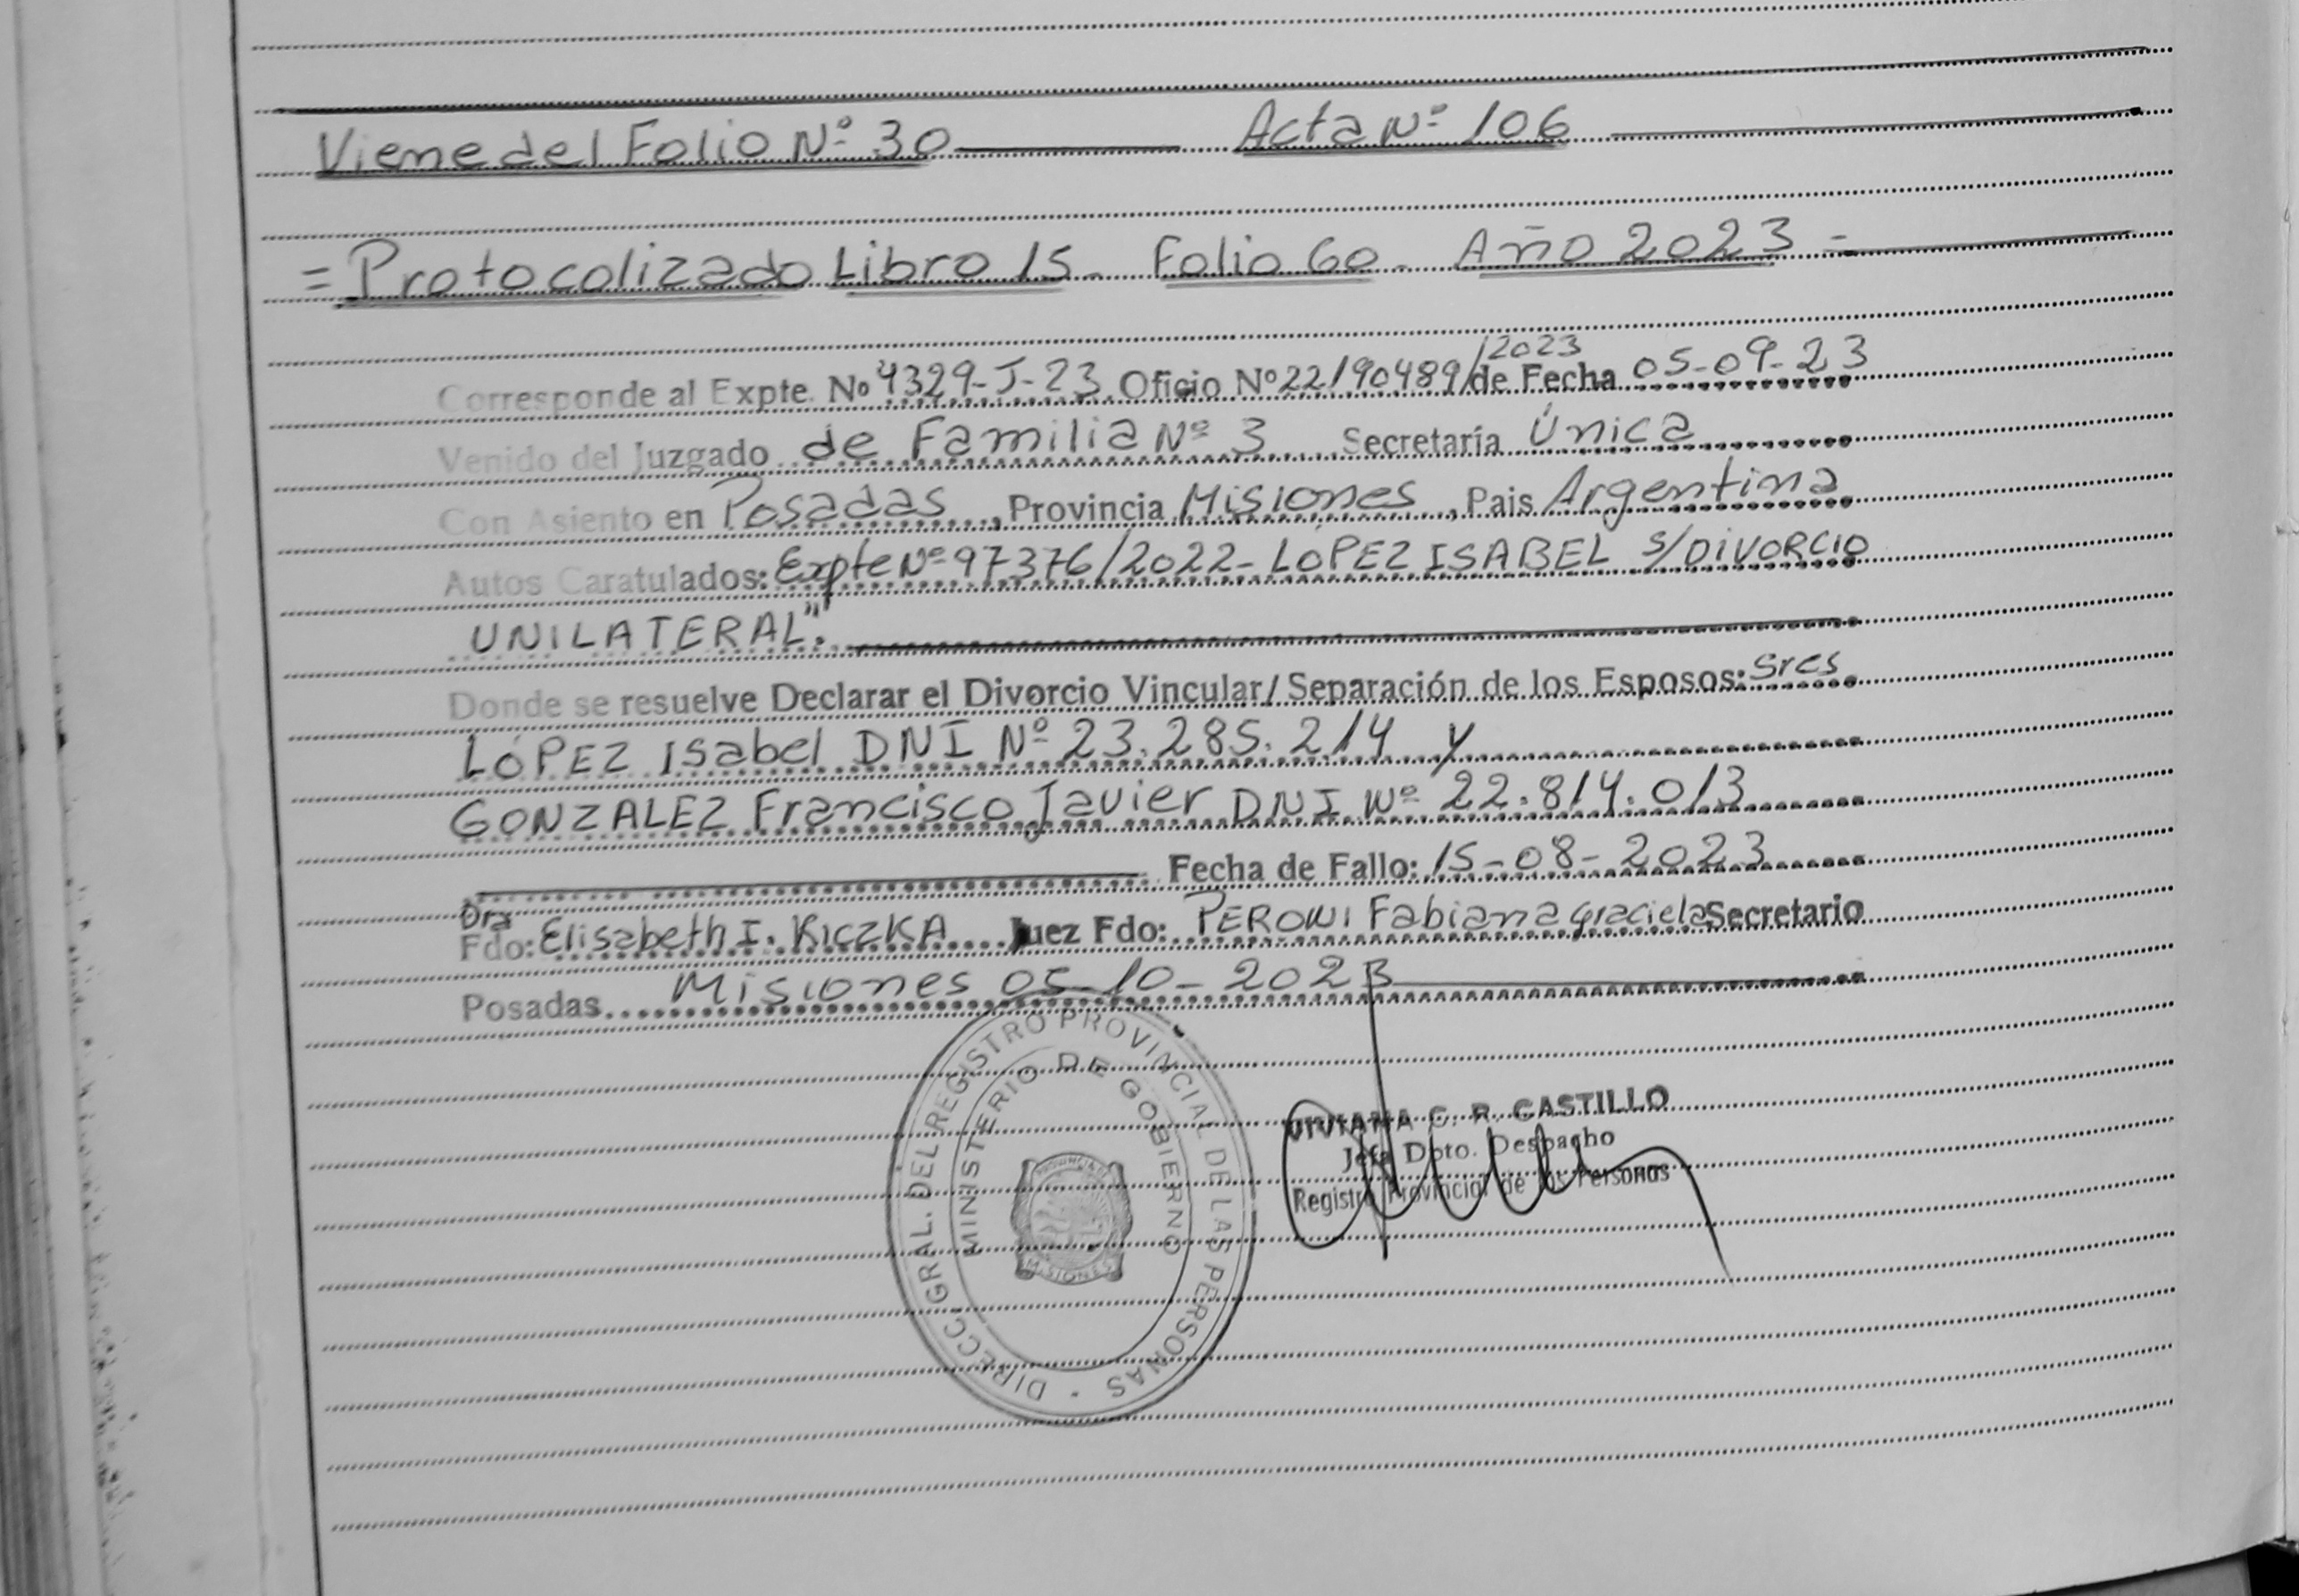 Viene del Folio Nº 30 Acta Nº 106
= Protocolizado Libro 15 - Folio 60 - Año 2023 =
Corresponde al Expte. Nº 4329-J-23 Oficio Nº 22190489/2023 de Fecha 05-09-23
Venido del Juzgado de Familia Nº 3 Secretaría Única
Con Asiento en Posadas, Provincia Misiones, Pais Argentina
Autos Caratulados: Expte Nº 97376/2022 - LÓPEZ ISABEL S/DIVORCIO
UNILATERAL".
Donde se resuelve Declarar el Divorcio Vincular/Separación de los Esposos: Sres
LÓPEZ Isabel DNI Nº 23.285.214 y
GONZALEZ Francisco Javier DNI Nº 22.814.013
Fecha de Fallo: 15-08-2023
Dra
Fdo: Elisabeth I. KICZKA Juez Fdo: PERONI Fabiana Graciela Secretario
Posadas Misiones 05-10-2023
DIRECC GRAL. DEL REGISTRO PROVINCIAL DE LAS PERSONAS
MINISTERIO DE GOBIERNO
PROVINCIA
MISIONES
VIVIANA C. R. CASTILLO
Jefa Dpto. Despacho
Registro Provincial de las Personas